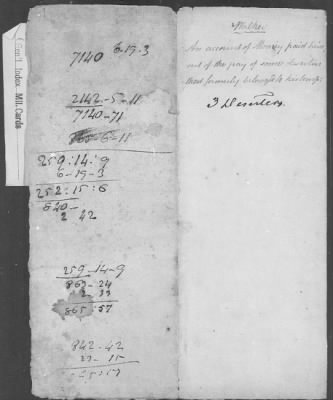 Gen'l Index Mil. Cards
7140 6-19-3
2142-5-11
7140-71
6-11
259:14:9
6-19-3
252:15:6
840-
2 42
259-14-9
863-24
2 33
865:57
842-42
23-15
An account of Money paid him
out of the pay of some deserters
that formerly belonged to his comp:
3 Deserters